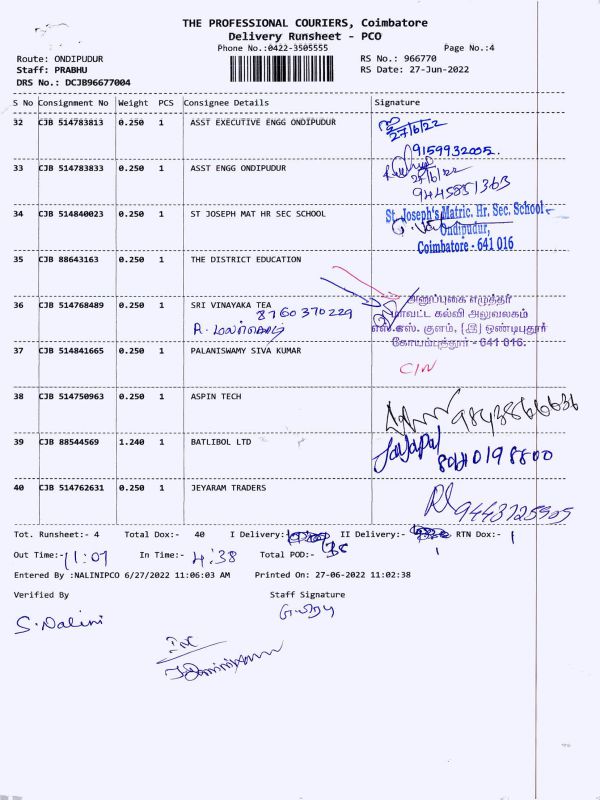 THE PROFESSIONAL COURIERS, Coimbatore
Delivery Runsheet - PCO
Phone No.:0422-3505555
Page No.:4
Route: ONDIPUDUR
RS No.: 966770
Staff: PRABHU
RS Date: 27-Jun-2022
DRS No.: DCJB96677004
S No Consignment No Weight PCS Consignee Details Signature
32 CJB 514783813 0.250 1 ASST EXECUTIVE ENGG ONDIPUDUR
27/6/22
9159932005.
33 CJB 514783833 0.250 1 ASST ENGG ONDIPUDUR
27/6/22
9445851363
34 CJB 514840023 0.250 1 ST JOSEPH MAT HR SEC SCHOOL
St. Joseph's Matric. Hr. Sec. School
Ondipudur,
Coimbatore - 641 016
35 CJB 88643163 0.250 1 THE DISTRICT EDUCATION
அனுப்புகை எழுத்தர்
மாவட்ட கல்வி அலுவலகம்
எஸ்.எஸ். குளம், (இ) ஒண்டிபுதூர்
கோயம்புத்தூர் - 641 016.
36 CJB 514768489 0.250 1 SRI VINAYAKA TEA
8760370229
37 CJB 514841665 0.250 1 PALANISWAMY SIVA KUMAR
C/N
38 CJB 514750963 0.250 1 ASPIN TECH
9843866636
39 CJB 88544569 1.240 1 BATLIBOI LTD
Jayapal
40 CJB 514762631 0.250 1 JEYARAM TRADERS
9443725905
Tot. Runsheet:- 4 Total Dox:- 40 I Delivery:- II Delivery:- RTN Dox:- 1
Out Time:- 11:07 In Time:- 4:38 Total POD:- 38
Entered By :NALINIPCO 6/27/2022 11:06:03 AM Printed On: 27-06-2022 11:02:38
Verified By Staff Signature
S. Nalini